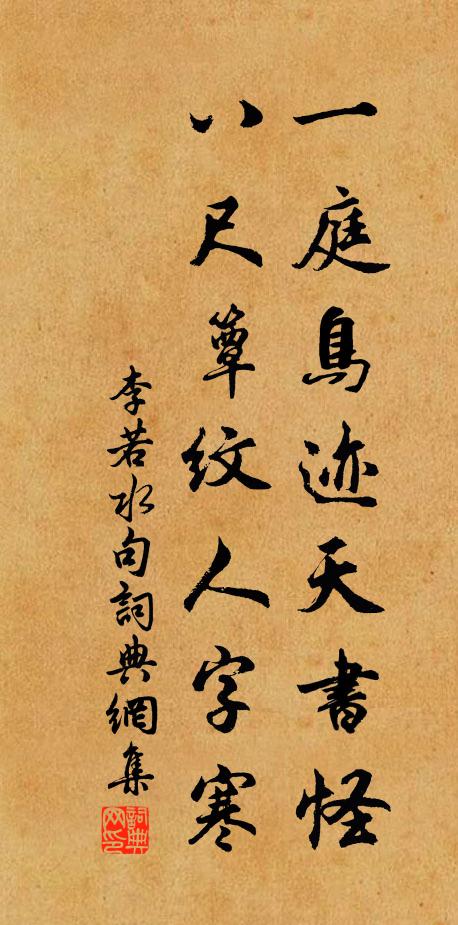 一庭鳥迹天書怪
八尺簟紋人字寒
李若水句詞典網集
詞典网印